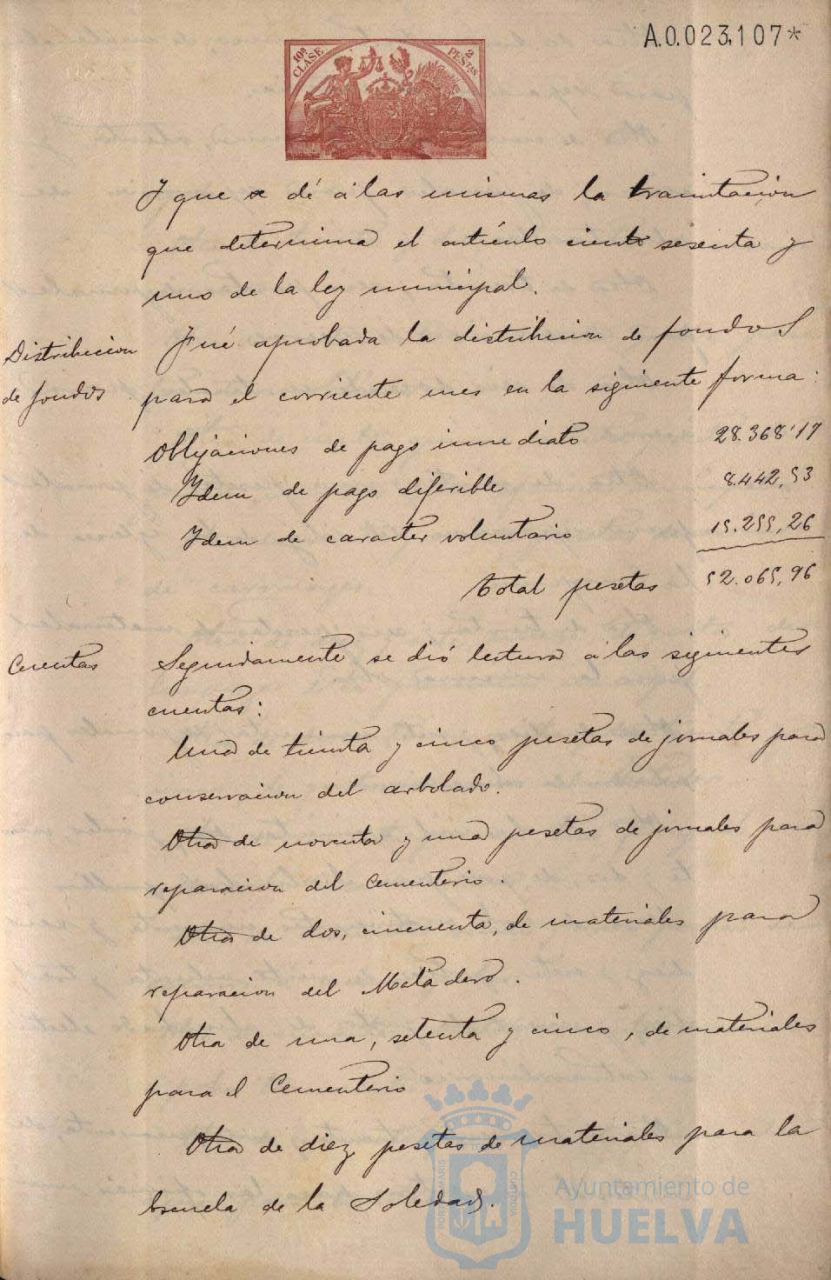 A.0.023,107*
10ª CLASE 2 PESTAS
Y que se dé á las mismas la tramitacion
que determina el artículo ciento sesenta y
uno de la ley municipal.
Distribucion
de fondos
Fué aprobada la distribucion de fondos
para el corriente mes en la siguiente forma:
Obligaciones de pago inmediato 28.368'17
Idem de pago diferible 8.442,53
Idem de caracter voluntario 15.255,26
Total pesetas 52.065,96
Cuentas
Seguidamente se dió lectura á las siguientes
cuentas:
Una de treinta y cinco pesetas de jornales para
conservacion del arbolado.
Otra de noventa y una pesetas de jornales para
reparacion del Cementerio.
Otra de dos, cincuenta, de materiales para
reparacion del Matadero.
Otra de una, setenta y cinco, de materiales
para el Cementerio
Otra de diez pesetas de materiales para la
Escuela de la Soledad.
Ayuntamiento de
HUELVA